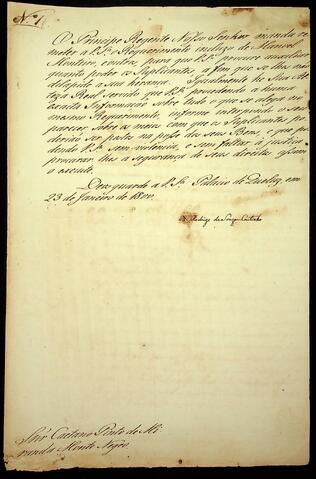 O Principe Regente Nosso Senhor manda re-
metter a V. Sª. o Requerimento incluzo de Manoel
Monteiro, e outros, para que V. Sª. procure auxiliar
quanto poder os Suplicantes, a fim que se lhes não
dilapide a sua herança. Igualmente he Sua Al-
teza Real Servido que V. Sª. procedendo a huma
exacta Informação sobre tudo o que se alega no
mesmo Requerimento, informe interpondo o seu
parecer sobre os meios com que os Suplicantes po-
derião ser postos na posse dos seus Bens, e que po-
dendo V. Sª. sem violencia, e sem faltar á justiça
procurar lhes a segurança de seus direitos assim
o execute.
Deos guarde a V. Sª. Palacio de Queluz, em
23 de Janeiro de 1800.
D. Rodrigo de Souza Coutinho
Snr. Caetano Pinto de Mi-
randa Monte Negro.